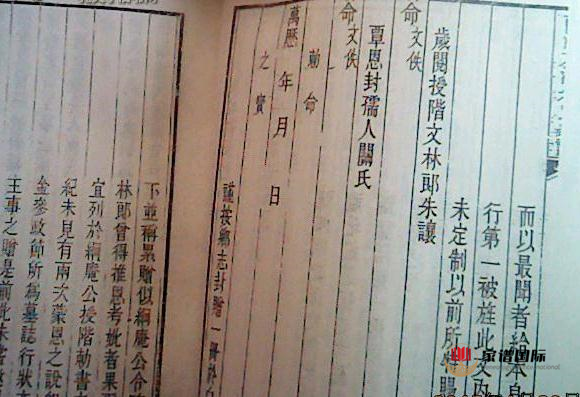 而以最聞者給本身
行第一被旌此文內
未定制以前所
歲閱授階文林郎朱讓
命文佚
覃恩封孺人關氏
命文佚
勅命
萬歷 年 月 日
之寶
謹按鄉志封贈一冊於
下並稱累贈似綱庵公合
林郎曾得推恩考妣者果
宜列於綱庵公授階勅書
紀未見有兩次蒙恩之說
金參政節所為墓誌行狀
主事之贈是前此未
家谱国际